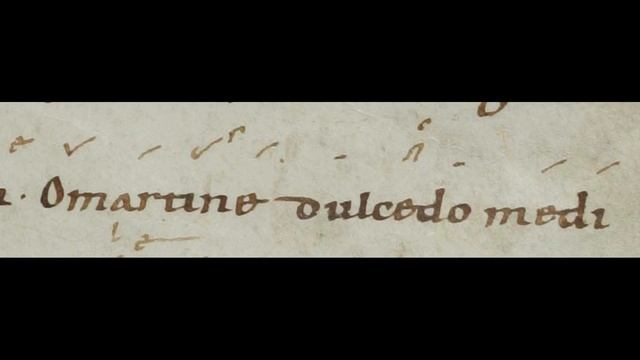 . O martine dulcedo medi